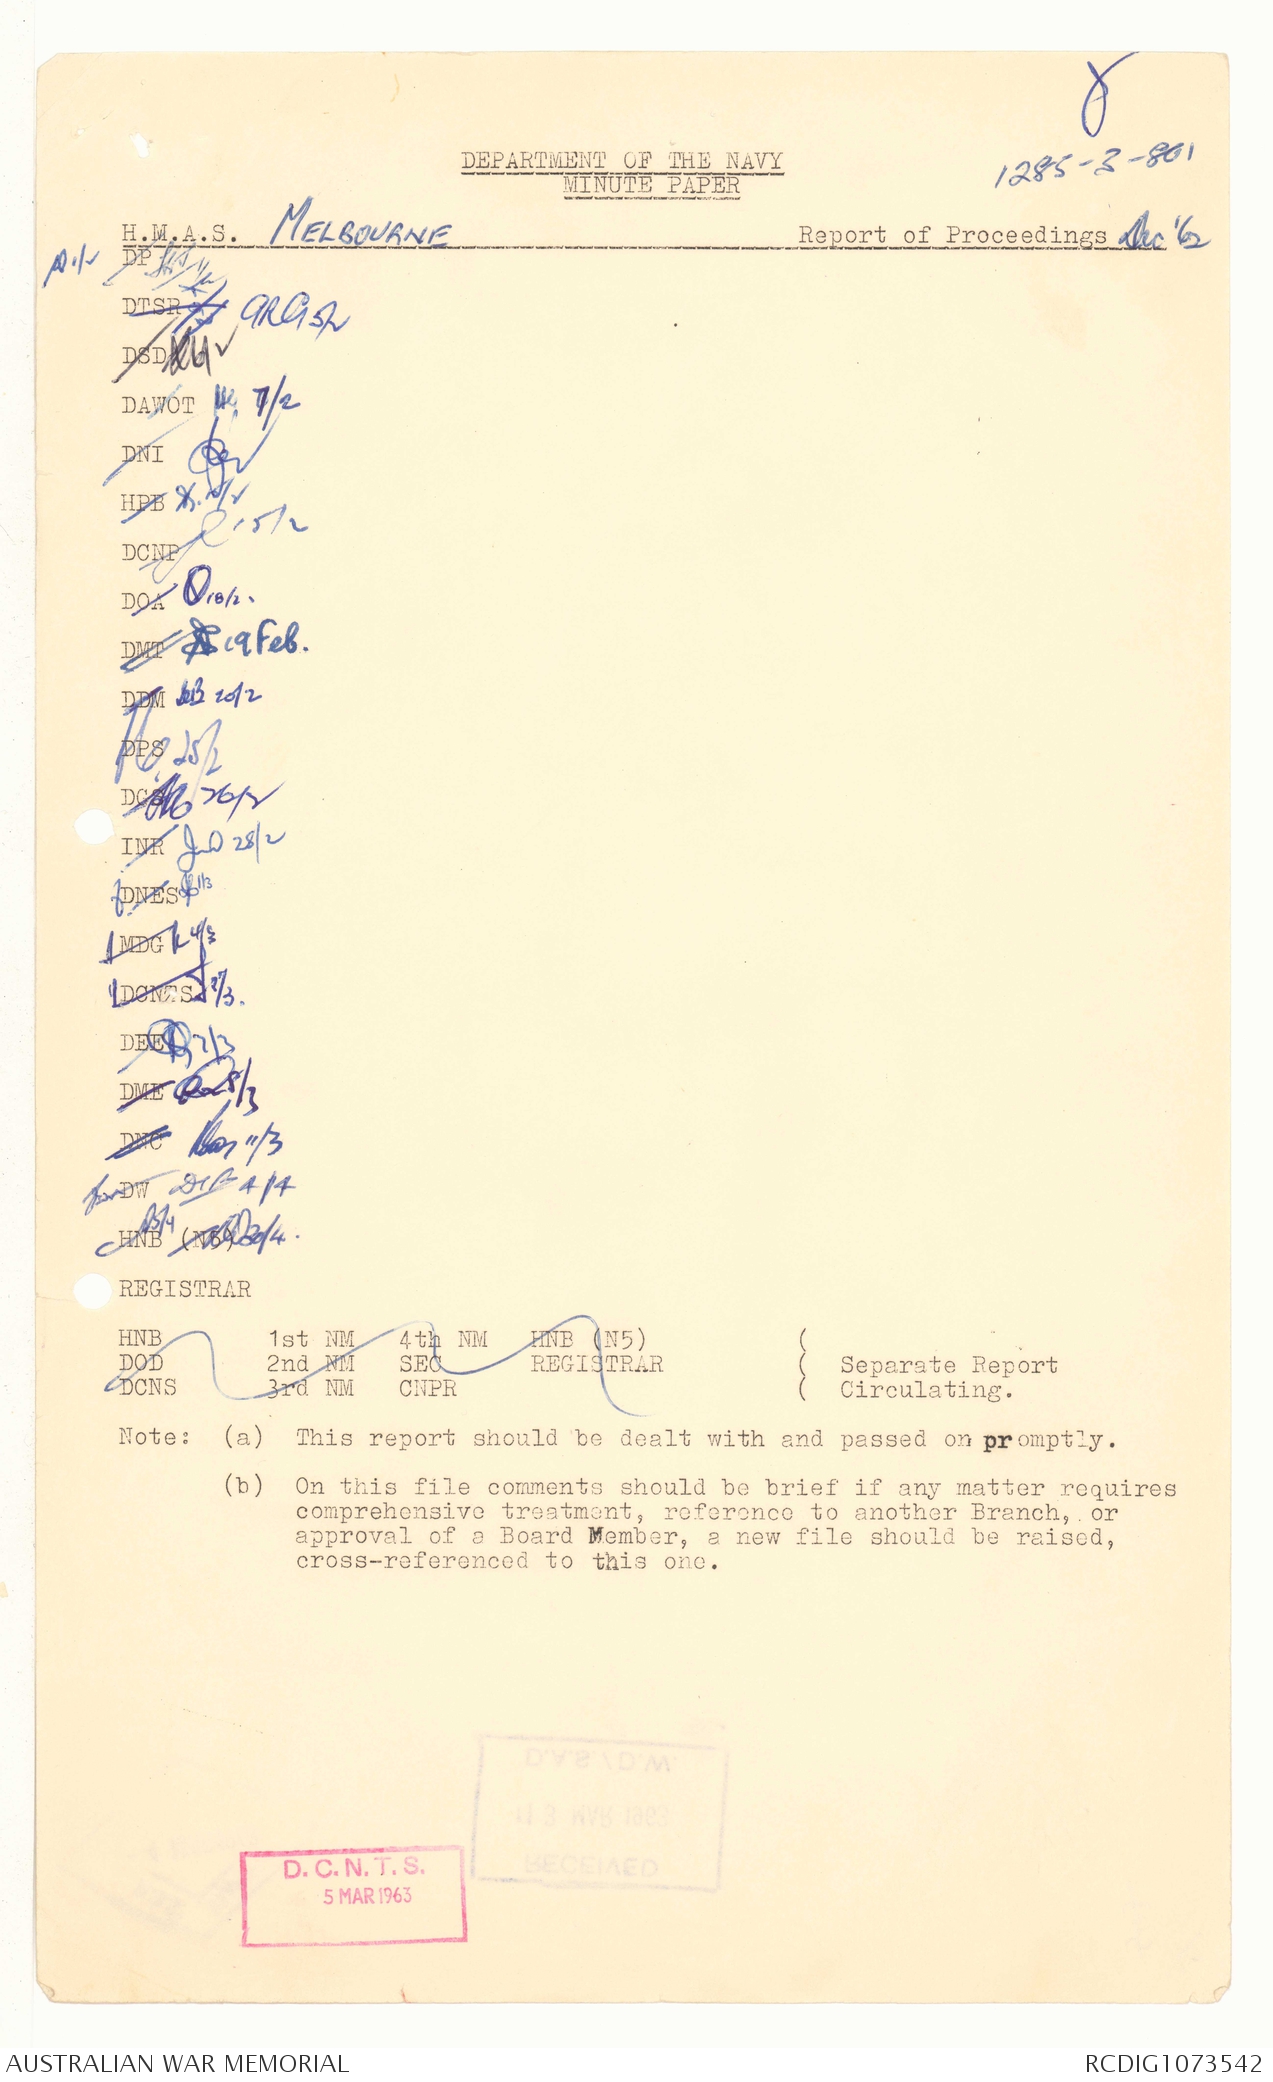 1285-3-801
DEPARTMENT OF THE NAVY
MINUTE PAPER
H.M.A.S. MELBOURNE Report of Proceedings Dec '62
DP
DTSR
DSD
DAWOT 7/2
DNI
HPB
DCNP 15/2
DOA 18/2.
DMT 19 Feb.
DDM 20/2
DPS 25/2
DGS 26/2
INR 28/2
DNES 1/3
MDG 4/3
DCNTS
DEE 7/3
DME 8/3
DNC 11/3
DW 4/4
HNB (N5) 30/4.
REGISTRAR
HNB 1st NM 4th NM HNB (N5) (
DOD 2nd NM SEC REGISTRAR ( Separate Report
DCNS 3rd NM CNPR ( Circulating.
Note: (a) This report should be dealt with and passed on promptly.
(b) On this file comments should be brief if any matter requires
comprehensive treatment, reference to another Branch, or
approval of a Board Member, a new file should be raised,
cross-referenced to this one.
D.A.S./D.W.
MAR 1963
RECEIVED
D.C.N.T.S.
5 MAR 1963
AUSTRALIAN WAR MEMORIAL RCDIG1073542